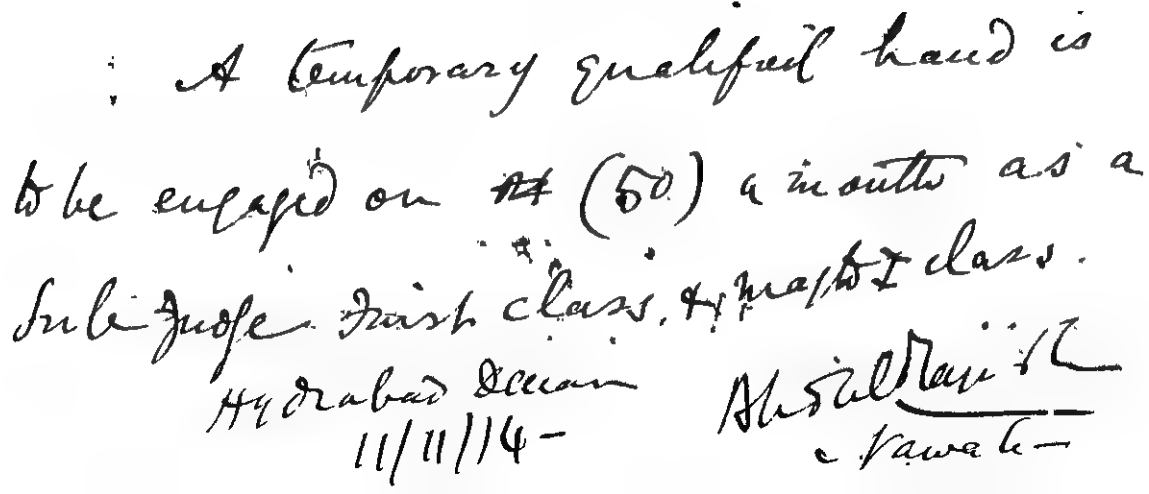 A temporary qualified hand is
to be engaged on (50) a month as a
Sub Judge First class, & Magte I class.
Hydrabad Deccan
11/11/14 -
Abdul Majid
Nawab